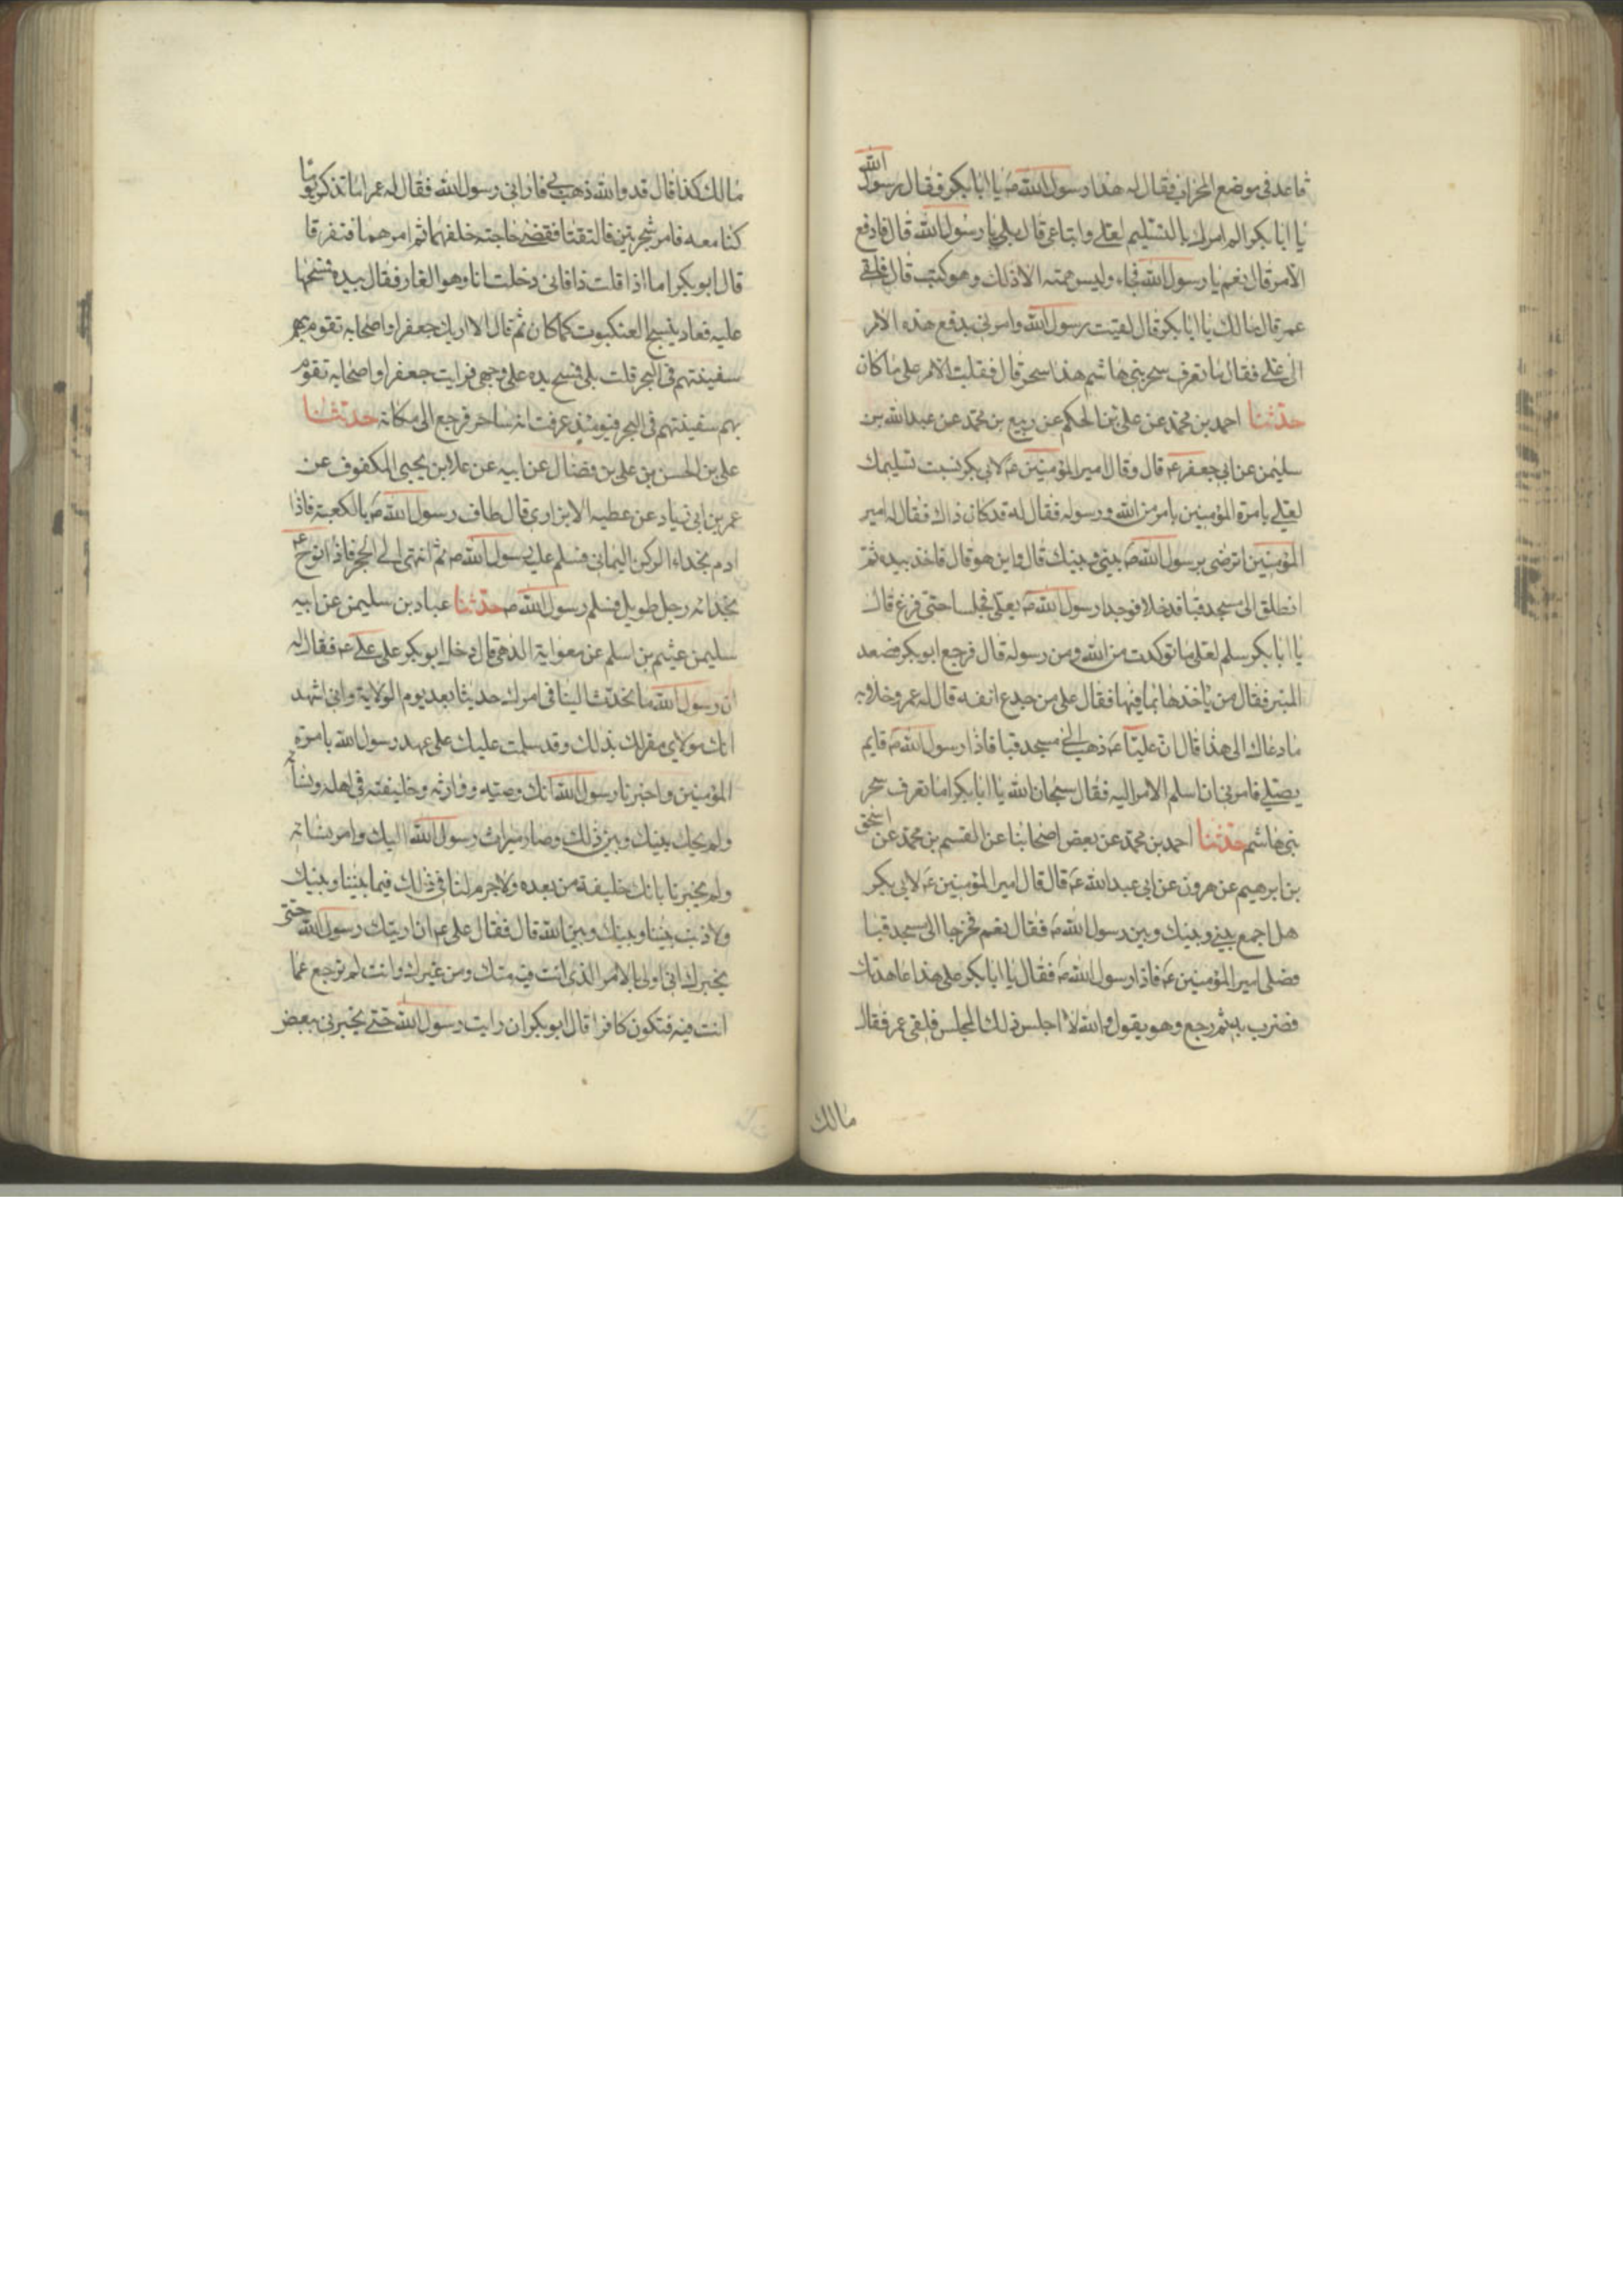 قاعد فى موضع المحراب فقال له هذا رسول الله ص يا ابا بكر فقال رسول الله
يا ابا بكر الم امرك بالتسليم لعلى واتباعى قال بلى يا رسول الله قال فادفع
الامر قال نعم يا رسول الله فجاء وليس همته الا ذلك وهو كئيب قال فلقى
عمر قال مالك يا ابا بكر قال لقيت رسول الله وامرنى بدفع هذه الامر
الى على فقال ما تعرف سحر بنى هاشم هذا سحر قال فقلب الامر على ما كان
حدثنا احمد بن محمد عن على بن الحكم عن ربيع بن محمد عن عبد الله بن
سليمن عن ابى جعفر ع قال وقال امير المؤمنين ع لابى بكر نسيت تسليمك
لعلى بامرة المؤمنين بامر من الله ورسوله فقال له قد كان ذاك فقال له امير
المؤمنين اترضى برسول الله ص بينى وبينك قال واين هو قال فاخذ بيده ثم
انطلق الى مسجد قبا فدخلا فوجدا رسول الله ص يصلى فجلسا حتى فرغ فقال
يا ابا بكر سلم لعلى ما توكدت من الله ومن رسوله قال فرجع ابو بكر فصعد
المنبر فقال من ياخذها بما فيها فقال على من جدع انفه قال له عمر وخلا به
ما دعاك الى هذا قال ان عليا ع ذهب الى مسجد قبا فاذا رسول الله ص قايم
يصلى فامرنى ان اسلم الامر اليه فقال سبحان الله يا ابا بكر اما تعرف سحر
بنى هاشم حدثنا احمد بن محمد عن بعض اصحابنا عن القسم بن محمد عن اسحق
بن ابرهيم عن هرون عن ابى عبد الله ع قال قال امير المؤمنين ع لابى بكر
هل اجمع بينى وبينك وبين رسول الله ص فقال نعم فخرجا الى مسجد قبا
فصلى امير المؤمنين ع فاذا رسول الله ص فقال يا ابا بكر على هذا عاهدتك
فضرب به ثم رجع وهو يقول والله لا اجلس ذلك المجلس فلقى عمر فقال
مالك
مالك كذا قال قد والله ذهب بى فارانى رسول الله فقال له عمر اما تذكر يوما
كنا معه فامر شجرتين فالتقتا فقضى حاجته خلفهما ثم امرهما فتفرقا
قال ابو بكر اما اذا قلت ذا فانى دخلت انا وهو الغار فقال بيده فمسحها
عليه فعاد ينسج العنكبوت كما كان ثم قال الا اريك جعفرا واصحابه تقوم بهم
سفينتهم فى البحر قلت بلى فمسح يده على وجهى فرايت جعفرا واصحابه تقوم
بهم سفينتهم فى البحر فيومئذ عرفت انه ساحر فرجع الى مكانه حدثنا
على بن الحسن بن على بن فضال عن ابيه عن علا بن يحيى المكفوف عن
عمر بن ابى زياد عن عطيه الابزارى قال طاف رسول الله ص بالكعبة فاذا
ادم بحذاء الركن اليمانى فسلم عليه رسول الله ص ثم انتهى الى الحجر فاذا نوح ع
بحذائه رجل طويل فسلم رسول الله ص حدثنا عباد بن سليمن عن ابيه
سليمن عن عيثم بن اسلم عن معوية الدهنى قال دخل ابو بكر على على ع فقال له
ان رسول الله ما تحدث الينا فى امرك حديثا بعد يوم الولاية وانى اشهد
انك مولاى مقر لك بذلك وقد سلمت عليك على عهد رسول الله بامرة
المؤمنين واخبرنا رسول الله انك وصيه ووارثه وخليفته فى اهله ونسائه
ولم يحل بينك وبين ذلك وصار ميراث رسول الله اليك وامر نسائه
ولم يخبرنا بانك خليفة من بعده ولا جرم لنا فى ذلك فيما بيننا وبينك
ولا ذنب بيننا وبينك وبين الله قال فقال على ع ان اريتك رسول الله حتى
يخبرك انى اولى بالامر الذى انت فيه منك ومن غيرك وانت لم ترجع عما
انت فيه فتكون كافرا قال ابو بكر ان رايت رسول الله حتى يخبرنى ببعض